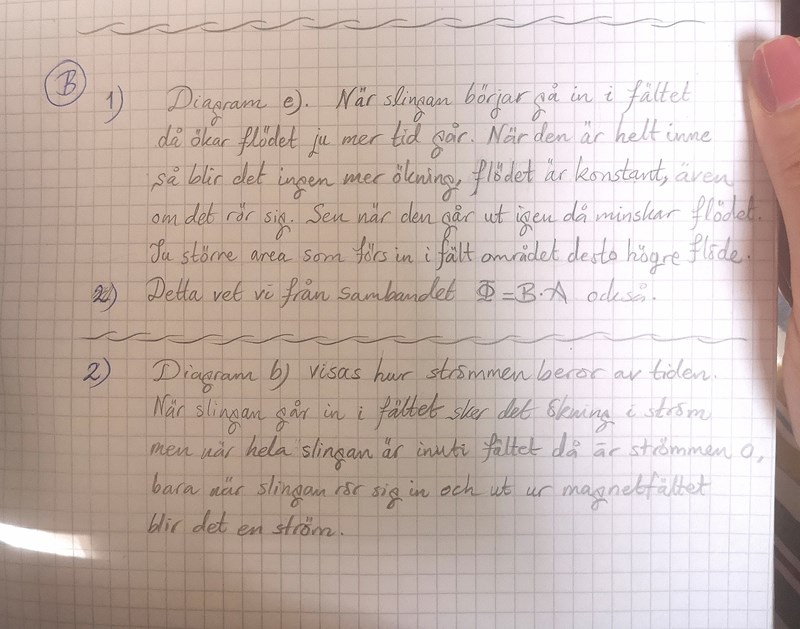 B
1) Diagram e). När slingan börjar gå in i fältet
då ökar flödet ju mer tid går. När den är helt inne
så blir det ingen mer ökning, flödet är konstant, även
om det rör sig. Sen när den går ut igen då minskar flödet.
Ju större area som förs in i fält området desto högre flöde.
2) Detta vet vi från sambandet Φ=B·A också.
2) Diagram b) visas hur strömmen beror av tiden.
När slingan går in i fältet sker det ökning i ström
men när hela slingan är inuti fältet då är strömmen 0,
bara när slingan rör sig in och ut ur magnetfältet
blir det en ström.